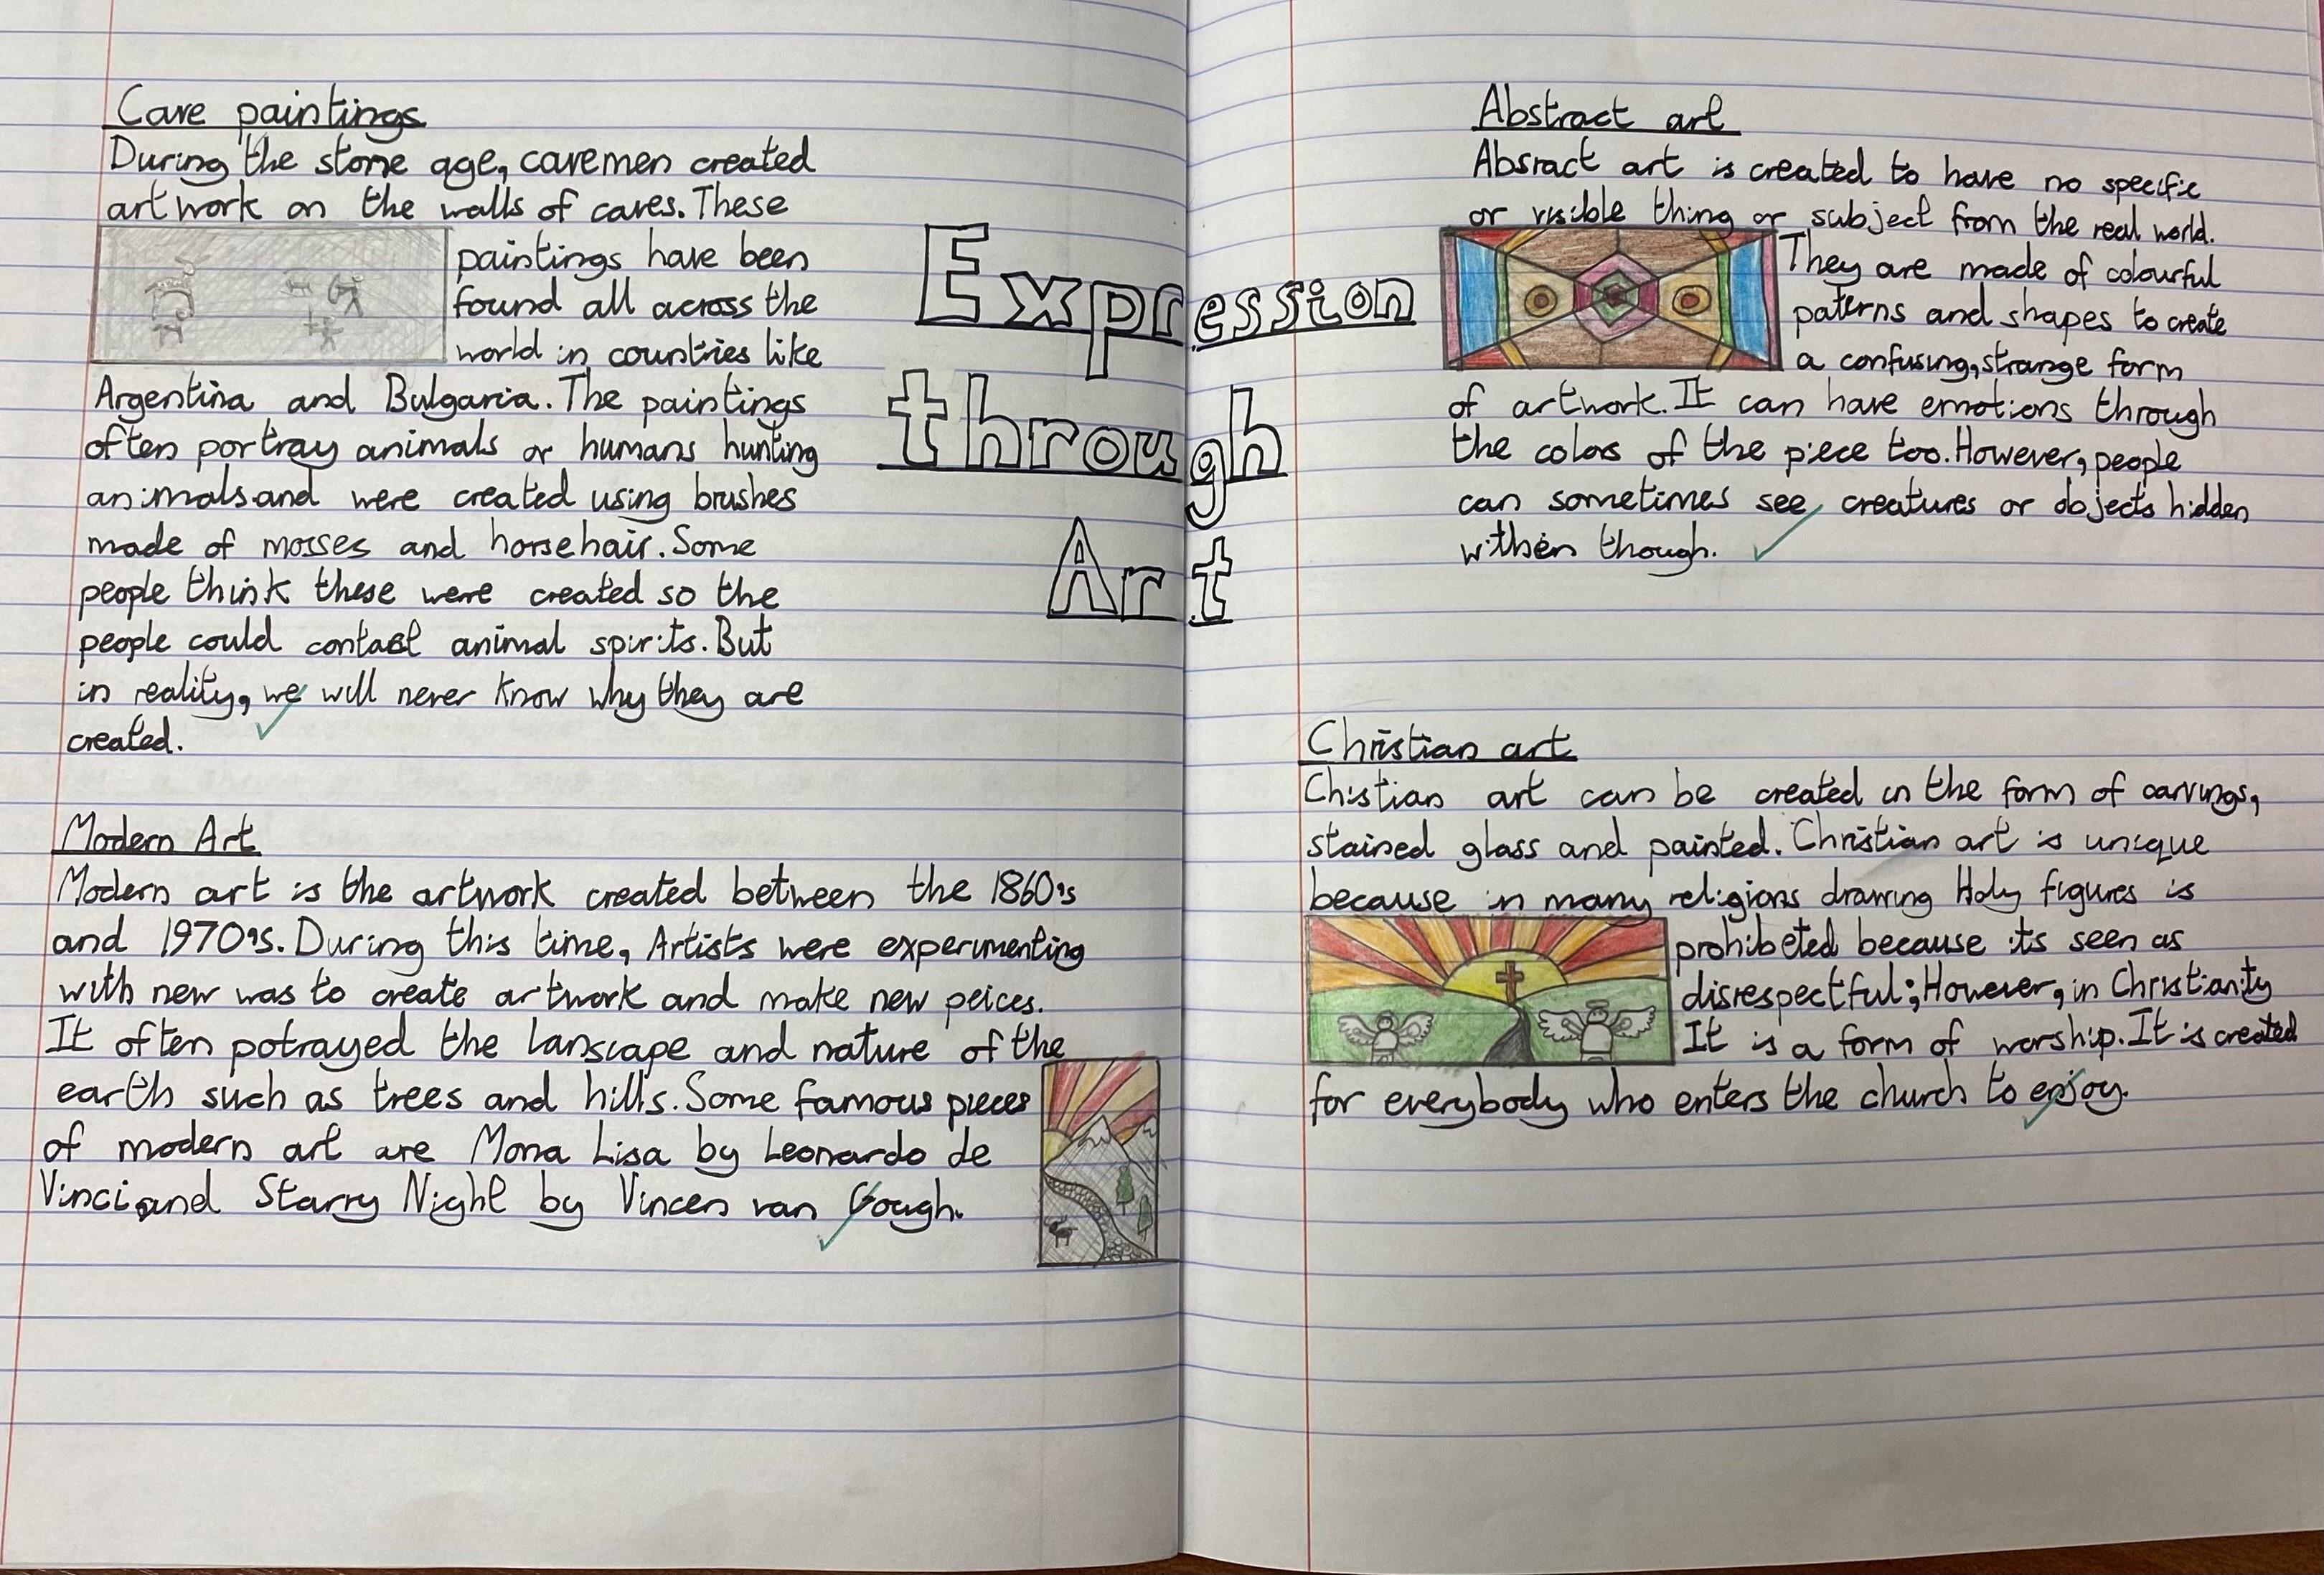 Cave paintings
During the stone age, cavemen created
artwork on the walls of caves. These
paintings have been
found all across the
world in countries like
Argentina and Bulgaria. The paintings
often portray animals or humans hunting
animals and were created using brushes
made of mosses and horsehair. Some
people think these were created so the
people could contact animal spirits. But
in reality, we will never know why they are
created.
Modern Art
Modern art is the artwork created between the 1860's
and 1970's. During this time, Artists were experimenting
with new was to create artwork and make new peices.
It often potrayed the lanscape and nature of the
earth such as trees and hills. Some famous pieces
of modern art are Mona Lisa by Leonardo de
Vinci and Starry Night by Vincen van Gough.
Expression
through
Art
Abstract art
Absract art is created to have no specific
or visible thing or subject from the real world.
They are made of colourful
paterns and shapes to create
a confusing, strange form
of artwork. It can have emotions through
the colors of the piece too. However, people
can sometimes see creatures or objects hidden
within though.
Christian art
Chistian art can be created in the form of carvings,
stained glass and painted. Christian art is unique
because in many religions drawing Holy figures is
prohibeted because its seen as
disrespectful; However, in Christianity
It is a form of worship. It is created
for everybody who enters the church to enjoy.